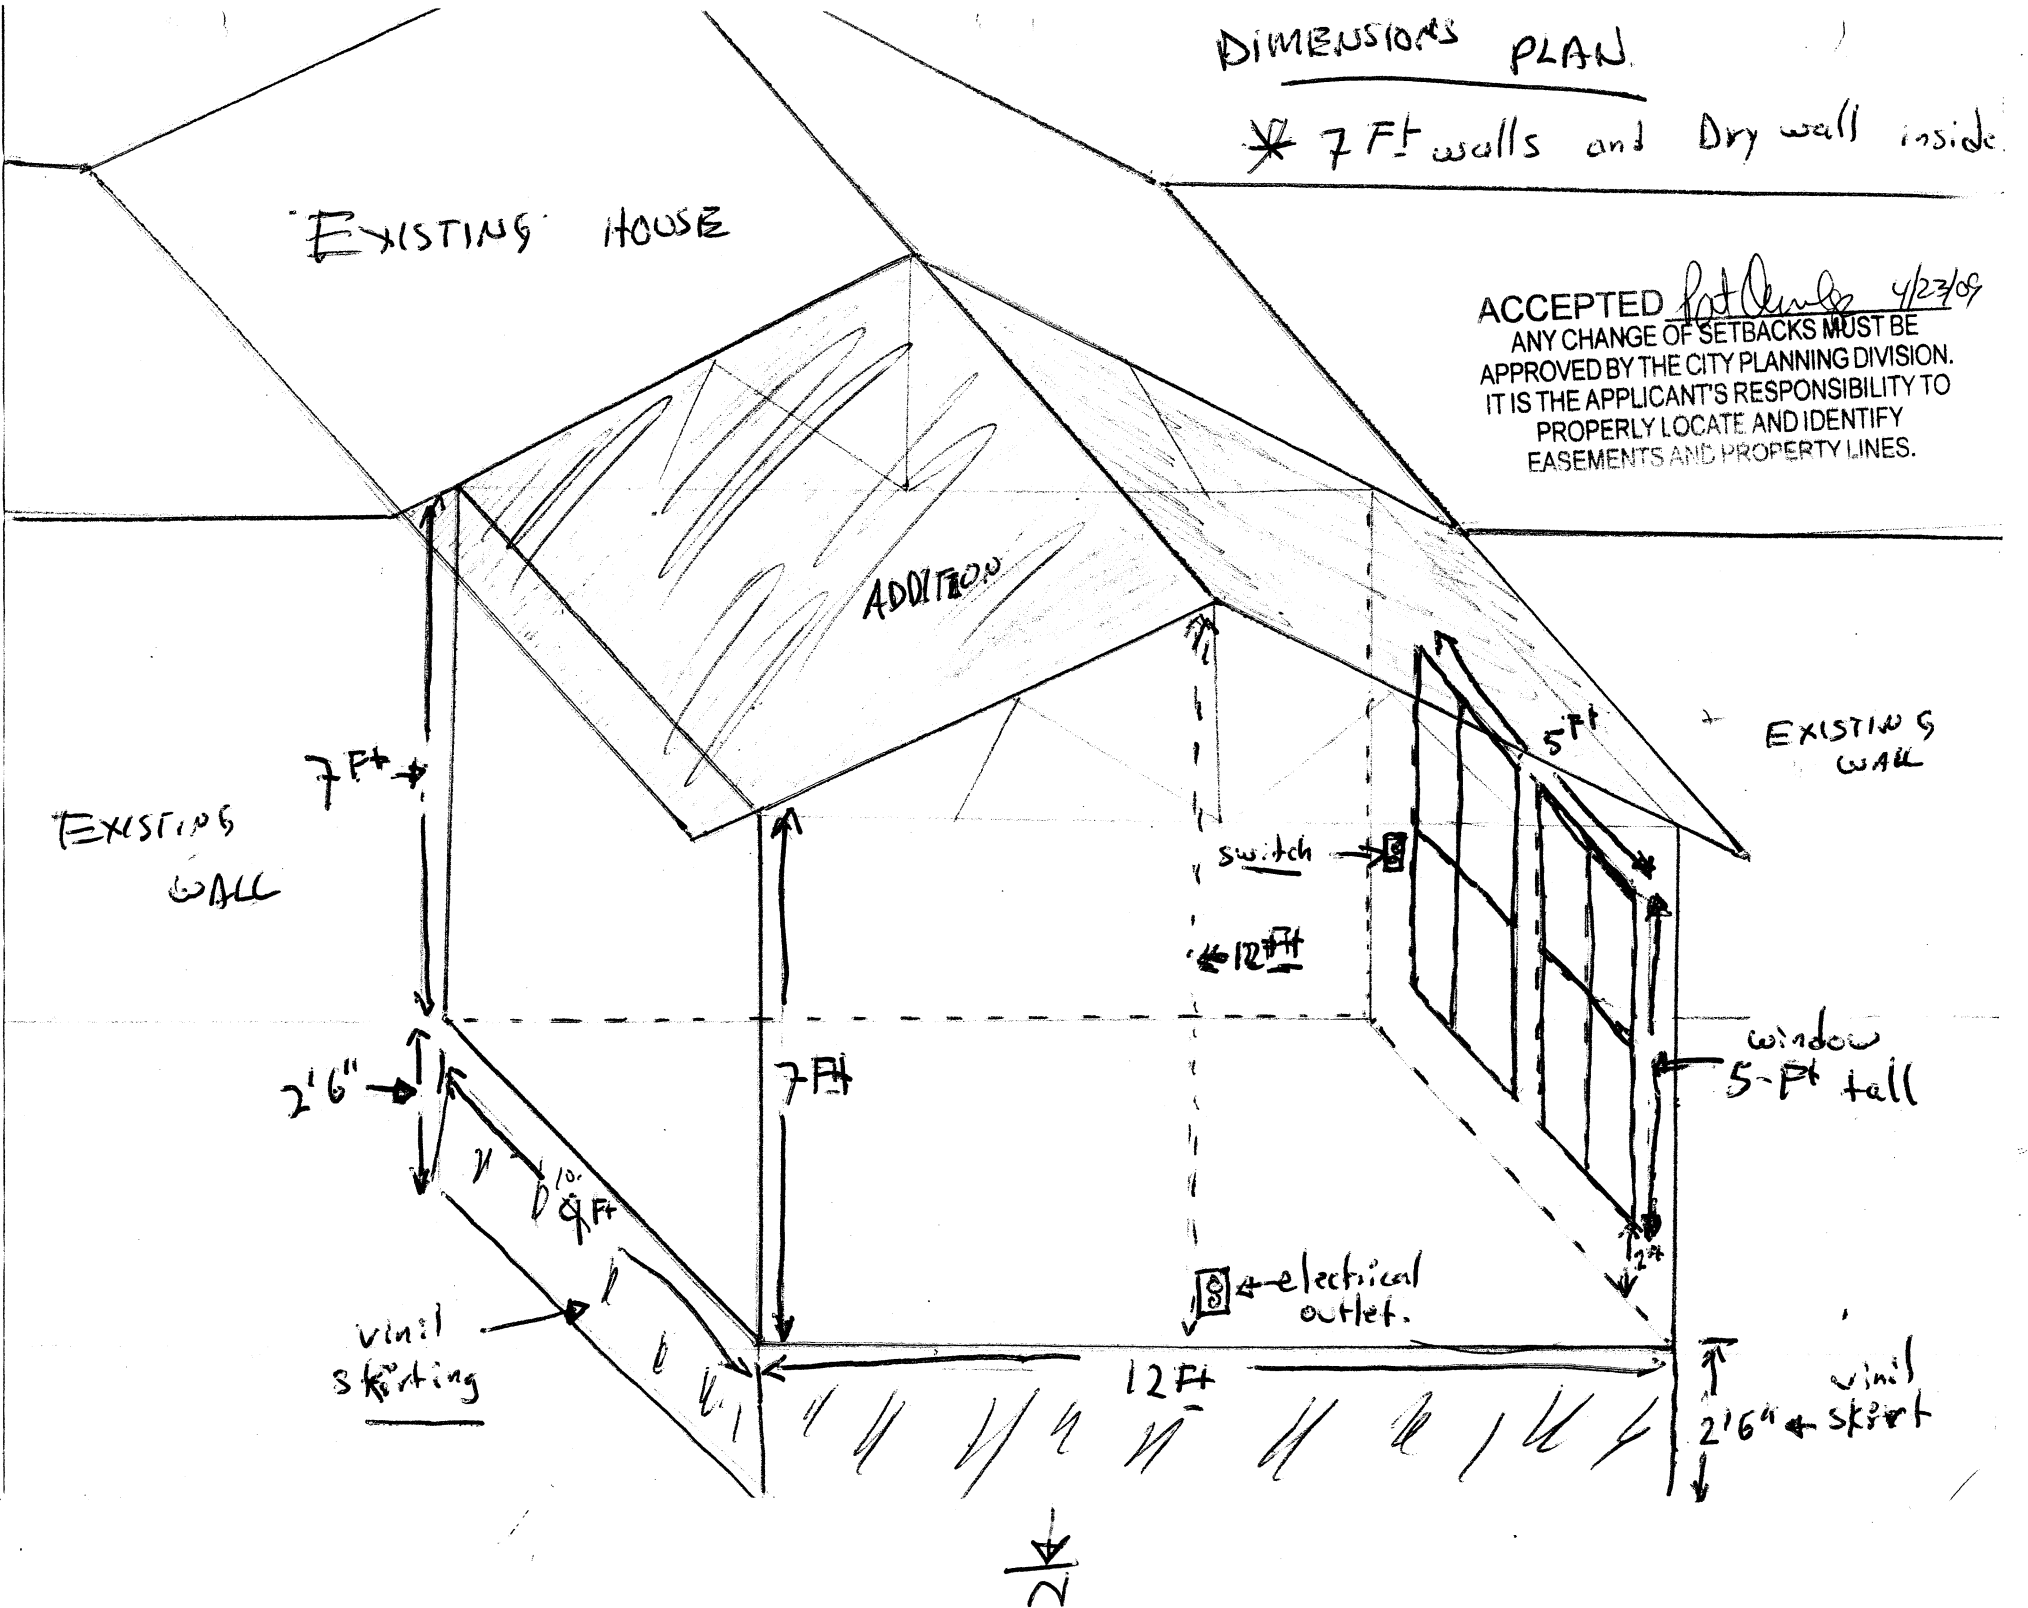 DIMENSIONS PLAN
* 7 Ft walls and Dry wall inside.
EXISTING HOUSE
ACCEPTED 4/23/09
ANY CHANGE OF SETBACKS MUST BE
APPROVED BY THE CITY PLANNING DIVISION.
IT IS THE APPLICANT'S RESPONSIBILITY TO
PROPERLY LOCATE AND IDENTIFY
EASEMENTS AND PROPERTY LINES.
ADDITION
7 Ft
5 Ft
EXISTING
WALL
EXISTING
WALL
switch
12 Ft
window
5-Ft tall
7 Ft
2'6"
9 Ft
2 Ft
electrical
outlet.
vinil
skirting
12 Ft
vinil
2'6" skirt
2